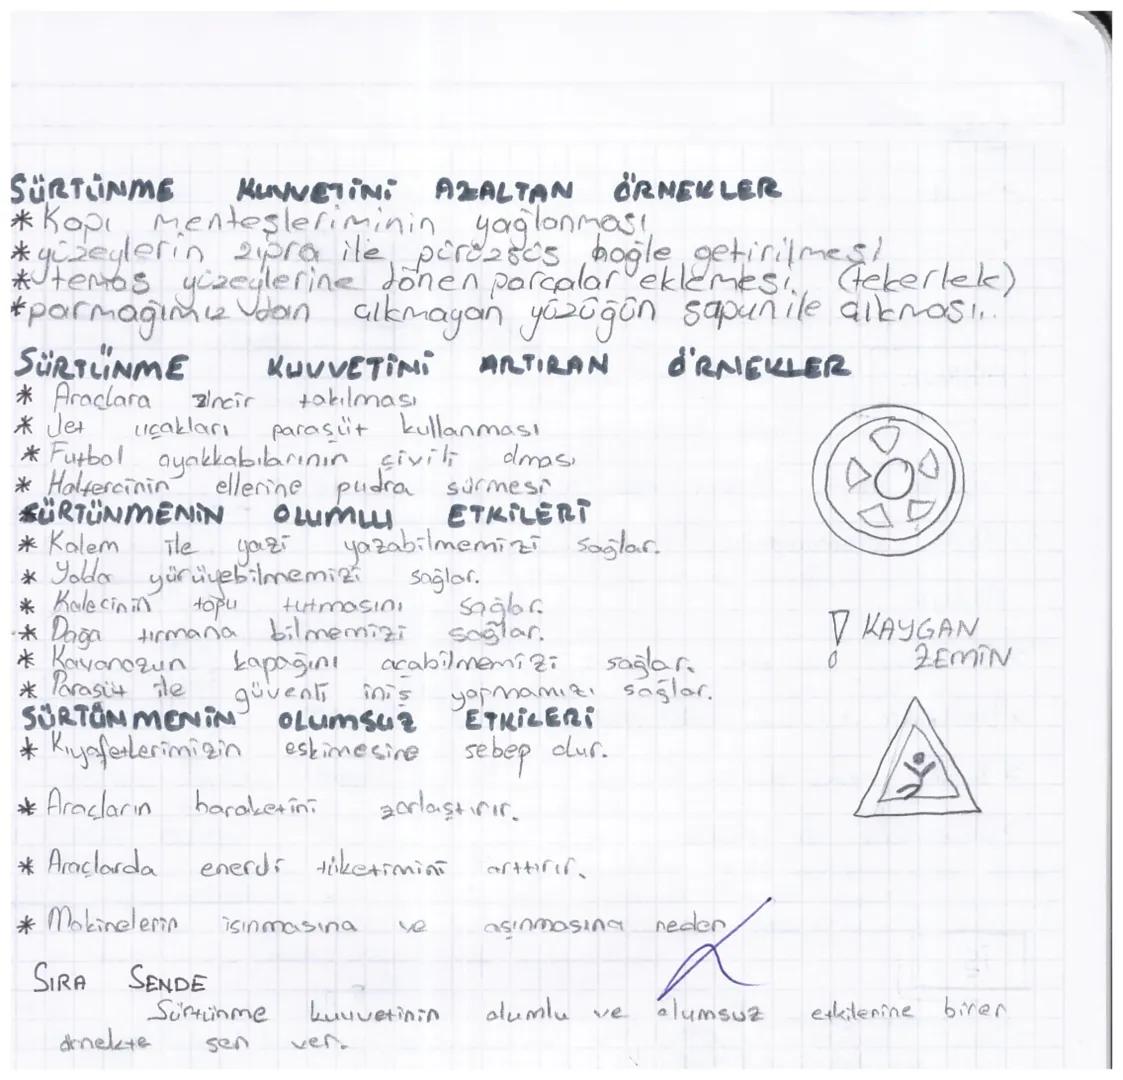 SÜRTÜNME KUVVETİNİ AZALTAN ÖRNEKLER
* Kapı menteşleriminin yağlanması
* yüzeylerin zıpra ile pürüzsüs hağle getirilmesi
* temas yüzeylerine dönen parçalar eklemesi. (tekerlek)
* parmağımızdan çıkmayan yüzüğün sapun ile çıkması..
SÜRTÜNME KUVVETİNİ ARTIRAN ÖRNEKLER
* Araçlara zincir takılması
* Jet uçakları paraşüt kullanması
* Futbol ayakkabılarının çivili olması
* Haltercinin ellerine pudra sürmesi
SÜRTÜNMENİN OLUMLU ETKİLERİ
* Kalem ile yazi yazabilmemizi sağlar.
* Yolda yürüyebilmemizi sağlar.
* Kalecinin topu tutmasını sağlar.
* Dağa tırmana bilmemizi sağlar.
* Kavanozun kapağını açabilmemizi sağlar.
* Paraşüt ile güvenli iniş yapmamızı sağlar.
! KAYGAN
ZEMİN
SÜRTÜNMENİN OLUMSUZ ETKİLERİ
* Kıyafetlerimizin eskimesine sebep olur.
* Araçların haraketini zorlaştırır.
* Araçlarda enerji tüketimini arttırır.
* Makinelerin ısınmasına ve aşınmasına neden
SIRA SENDE
Sürtünme kuvvetinin olumlu ve olumsuz etkilerine birer
örnekte sen ver.